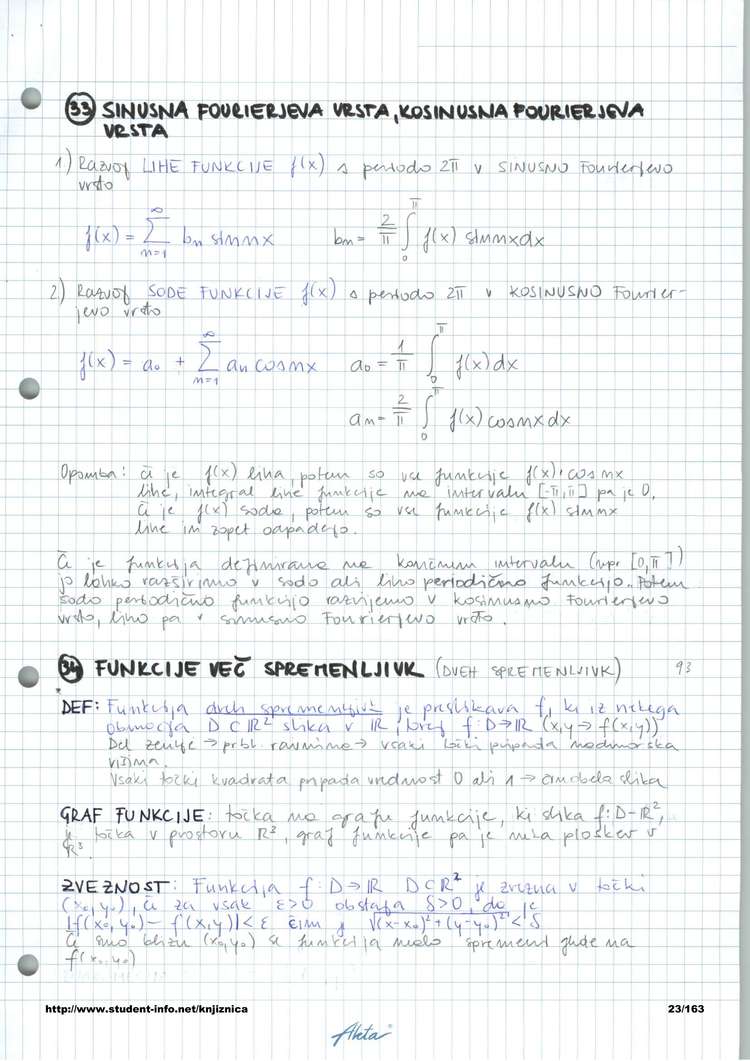 33 SINUSNA FOURIERJEVA VRSTA, KOSINUSNA FOURIERJEVA
VRSTA
1) Razvoj LIHE FUNKCIJE f(x) s periodo 2π v SINUSNO Fourierjevo
vrsto
f(x) = ∑_{n=1}^{∞} bn sin nx    bn = 2/π ∫_0^π f(x) sin nx dx
2) Razvoj SODE FUNKCIJE f(x) s periodo 2π v KOSINUSNO Fourier-
jevo vrsto
f(x) = a0 + ∑_{n=1}^{∞} an cos nx    a0 = 1/π ∫_0^π f(x) dx
an = 2/π ∫_0^π f(x) cos nx dx
Opomba: Če je f(x) liha, potem so vse funkcije f(x)·cos nx
lihe, integral lihe funkcije na intervalu [-π,π] pa je 0,
Če je f(x) soda, potem so vse funkcije f(x) sin nx
lihe in zopet odpadejo.
Če je funkcija definirana na končnem intervalu (npr [0,π])
jo lahko razširimo v sodo ali liho periodično funkcijo. Potem
sodo periodično funkcijo razvijemo v kosinusno Fourierjevo
vrsto, liho pa v sinusno Fourierjevo vrsto.
34 FUNKCIJE VEČ SPREMENLJIVK (DVEH SPREMENLJIVK) 93
DEF: Funkcija dveh spremenljivk je preslikava f, ki iz nekega
območja D⊂ℝ² slika v ℝ, torej f: D→ℝ (x,y → f(x,y))
Del zemlje → prbl. ravnina → vsaki točki pripada nadmorska
višina.
Vsaki točki kvadrata pripada vrednost 0 ali 1 → črnobela slika
GRAF FUNKCIJE: točka na grafu funkcije, ki slika f: D→ℝ²,
je točka v prostoru ℝ³, graf funkcije pa je neka ploskev v
ℝ³.
ZVEZNOST: Funkcija f: D→ℝ D⊂ℝ² je zvezna v točki
(x0,y0), če za vsak ε>0 obstaja δ>0, da je
|f(x0,y0) - f(x,y)| < ε čim je √((x-x0)²+(y-y0)²) < δ
Če smo blizu (x0,y0) se funkcija malo spremeni glede na
f(x0,y0)
http://www.student-info.net/knjiznica 23/163